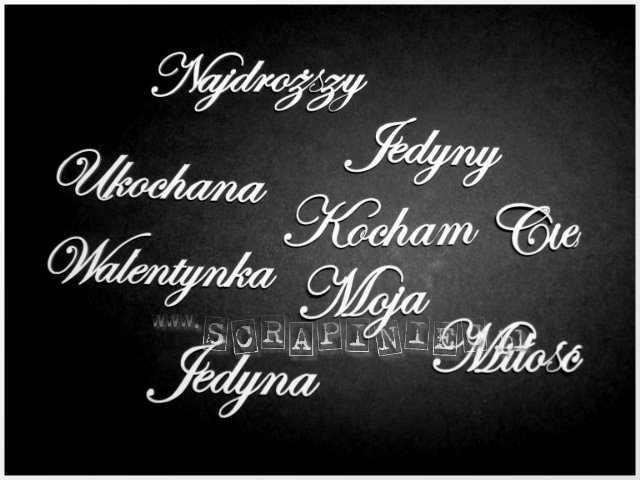 Najdroższy
Jedyny
Ukochana
Kocham Cię
Walentynka
Moja
www.SCRAPINIEC.pl
Miłość
Jedyna